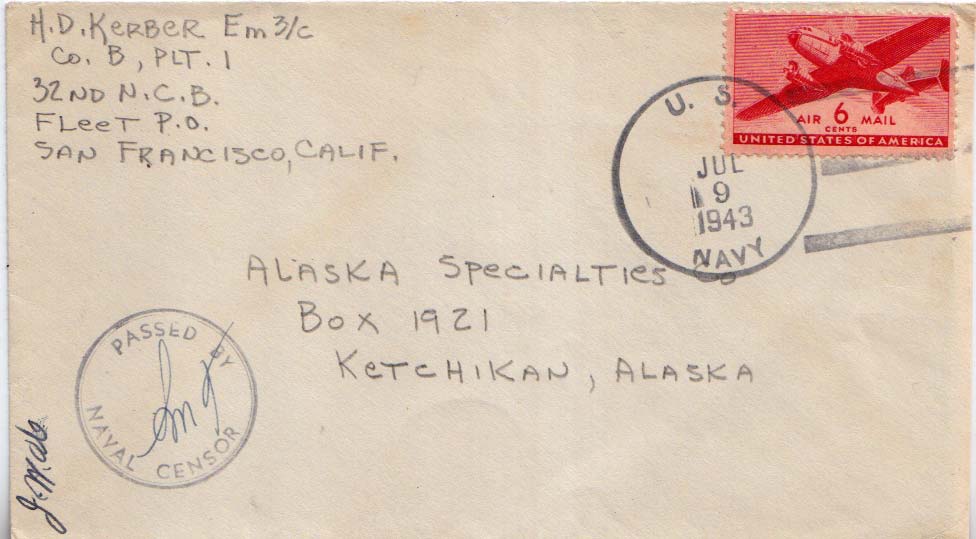 H.D. KERBER Em 3/c
Co. B, PLT. 1
32ND N.C.B.
FLEET P.O.
SAN FRANCISCO, CALIF.
AIR 6 MAIL
CENTS
UNITED STATES OF AMERICA
U. S.
JUL
9
1943
NAVY
ALASKA SPECIALTIES Co
BOX 1921
KETCHIKAN, ALASKA
PASSED BY
NAVAL CENSOR